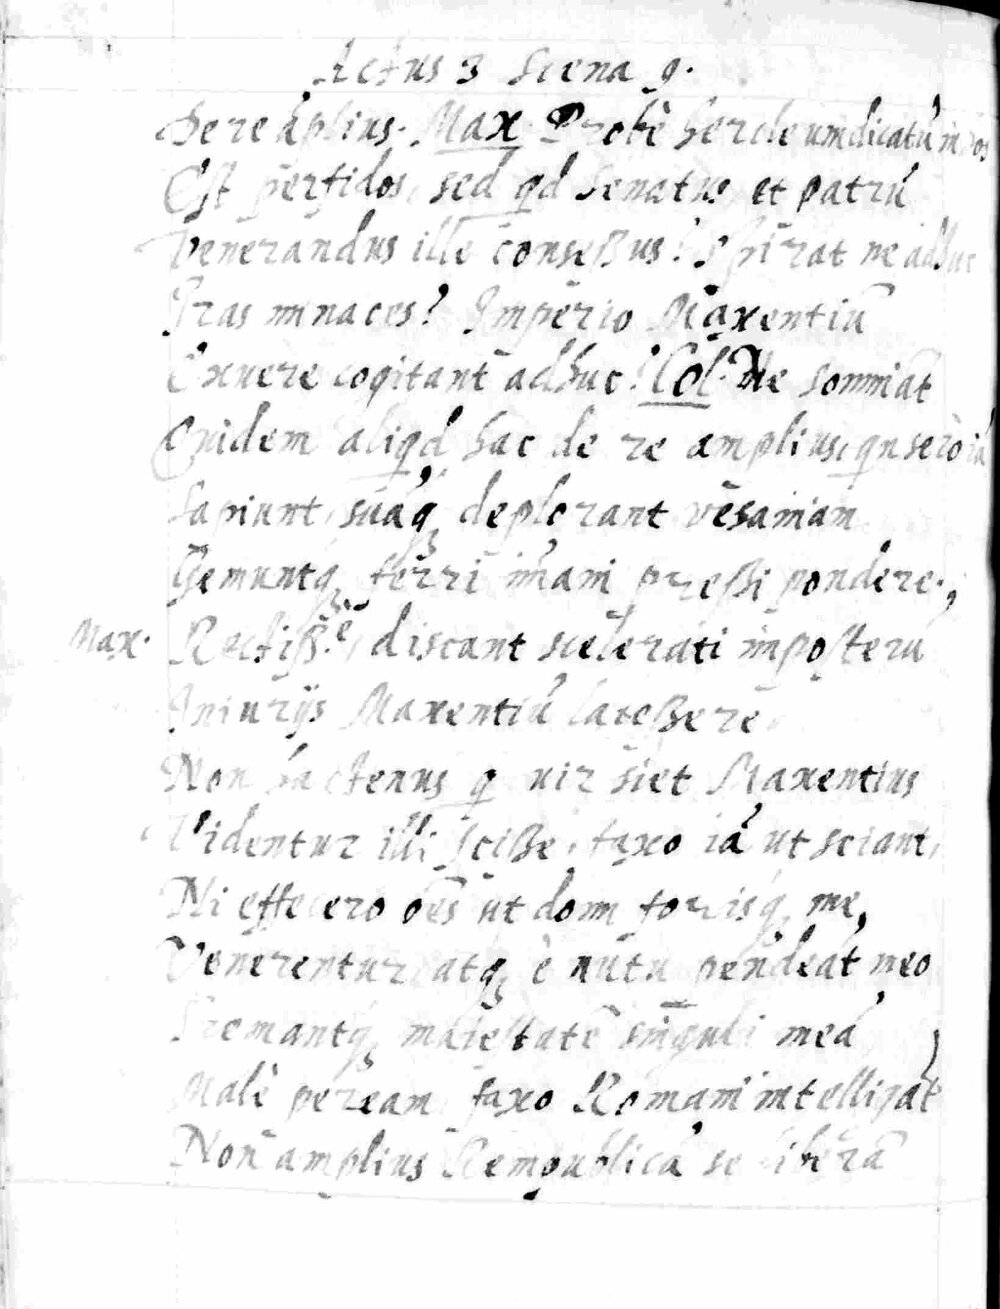 Actus 3 Scena 9.
De re ãplius. Max Probè hercle uindicatũ in os
Est perfidos, sed qd Senatus et patrũ
Venerandus ille conseßus? Spirat ne adhuc
Iras minaces? Imperio Maxentiũ
Exuere cogitant adhuc? Col. Ne somniãt
Quidem aliqd hac de re amplius, qn serò iã
Sapiunt, suãq; deplorant vesaniam
Gemuntq; ferri iñani preßi pondere.,
Max. Rectiß.è, discant scelerati imposterũ
Iniurijs Maxentiũ laceßere
Non hactenus q uir siet Maxentius
Videntur illi sciße, faxo iã ut sciant,
Ni effecero oẽs ut domi forisq; me,
Venerentur atq; è nutu pendeãt meo
Tremantq; maiestatẽ singuli meã
Malè peream, faxo Romani intelligãt
Non amplius Rempublicã se liberã